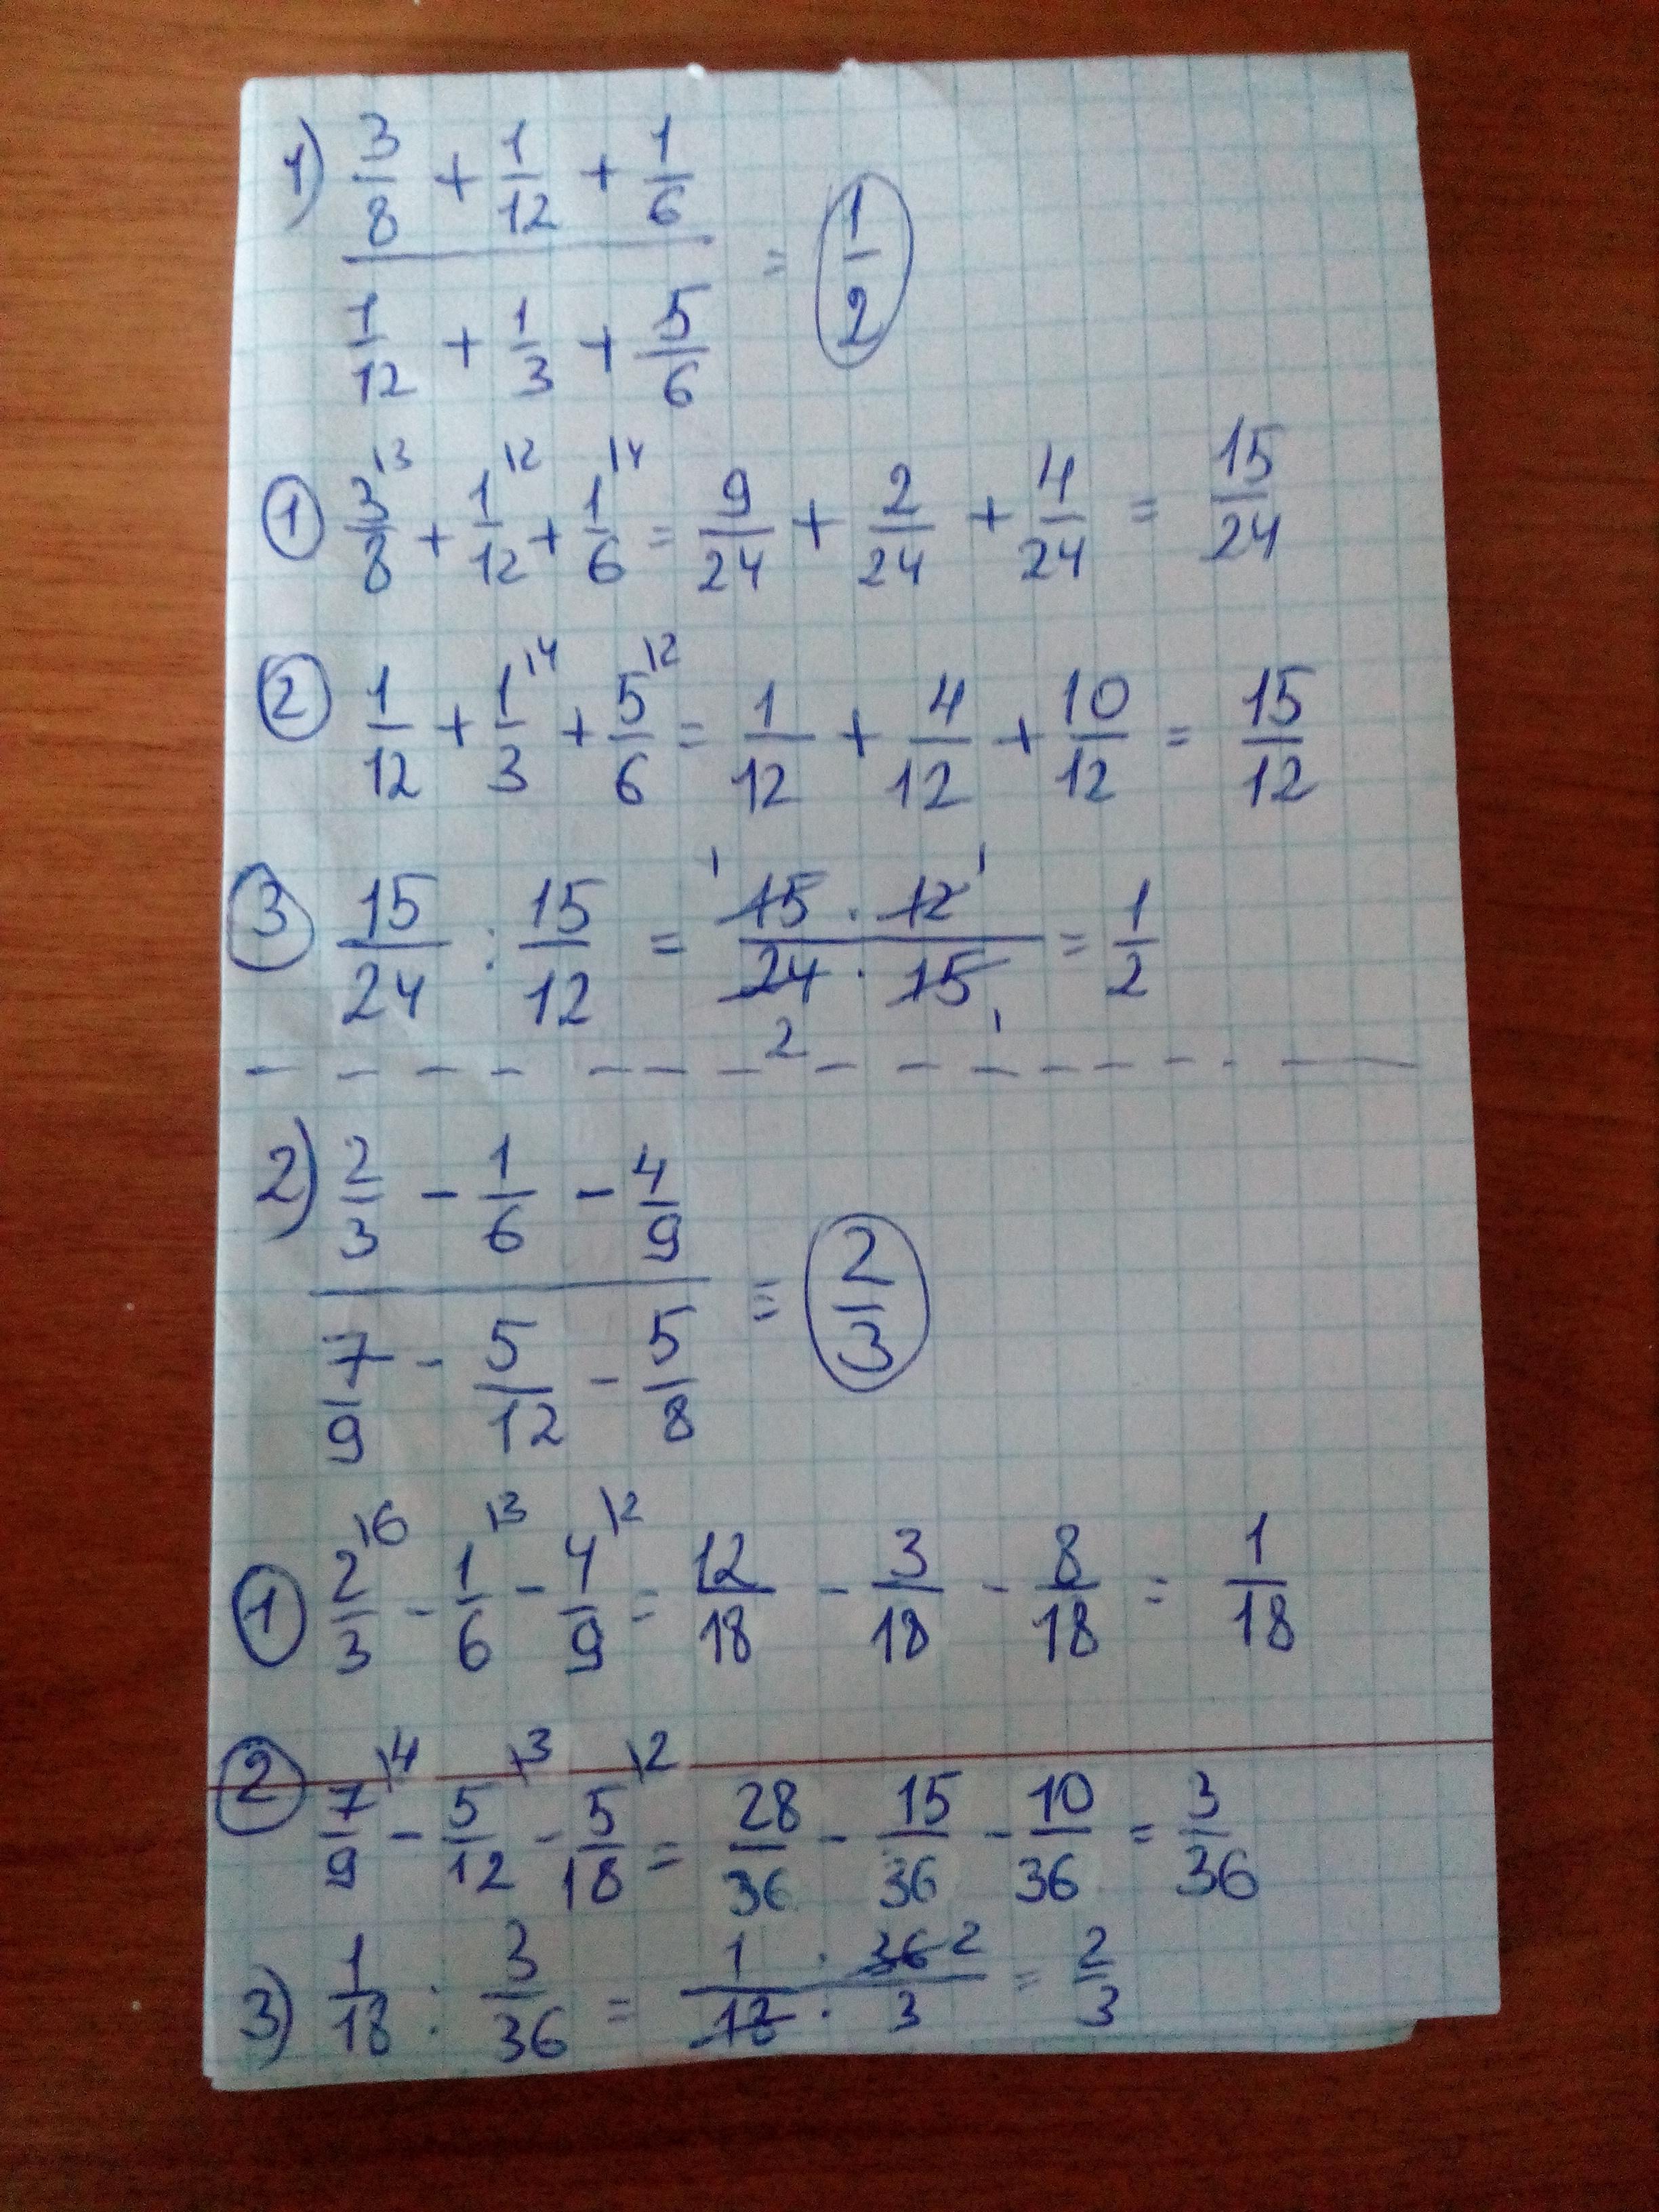 1) 3/8 + 1/12 + 1/6
= 1/2
1/12 + 1/3 + 5/6
① 3/8 \3 + 1/12 \2 + 1/6 \4 = 9/24 + 2/24 + 4/24 = 15/24
② 1/12 + 1/3 \4 + 5/6 \2 = 1/12 + 4/12 + 10/12 = 15/12
③ 15/24 : 15/12 = 1 15 · 12 1 / 24 2 · 15 1 = 1/2
2) 2/3 - 1/6 - 4/9
= 2/3
7/9 - 5/12 - 5/8
① 2/3 \6 - 1/6 \3 - 4/9 \2 = 12/18 - 3/18 - 8/18 = 1/18
② 7/9 \4 - 5/12 \3 - 5/18 \2 = 28/36 - 15/36 - 10/36 = 3/36
3) 1/18 : 3/36 = 1 · 36 2 / 18 · 3 = 2/3